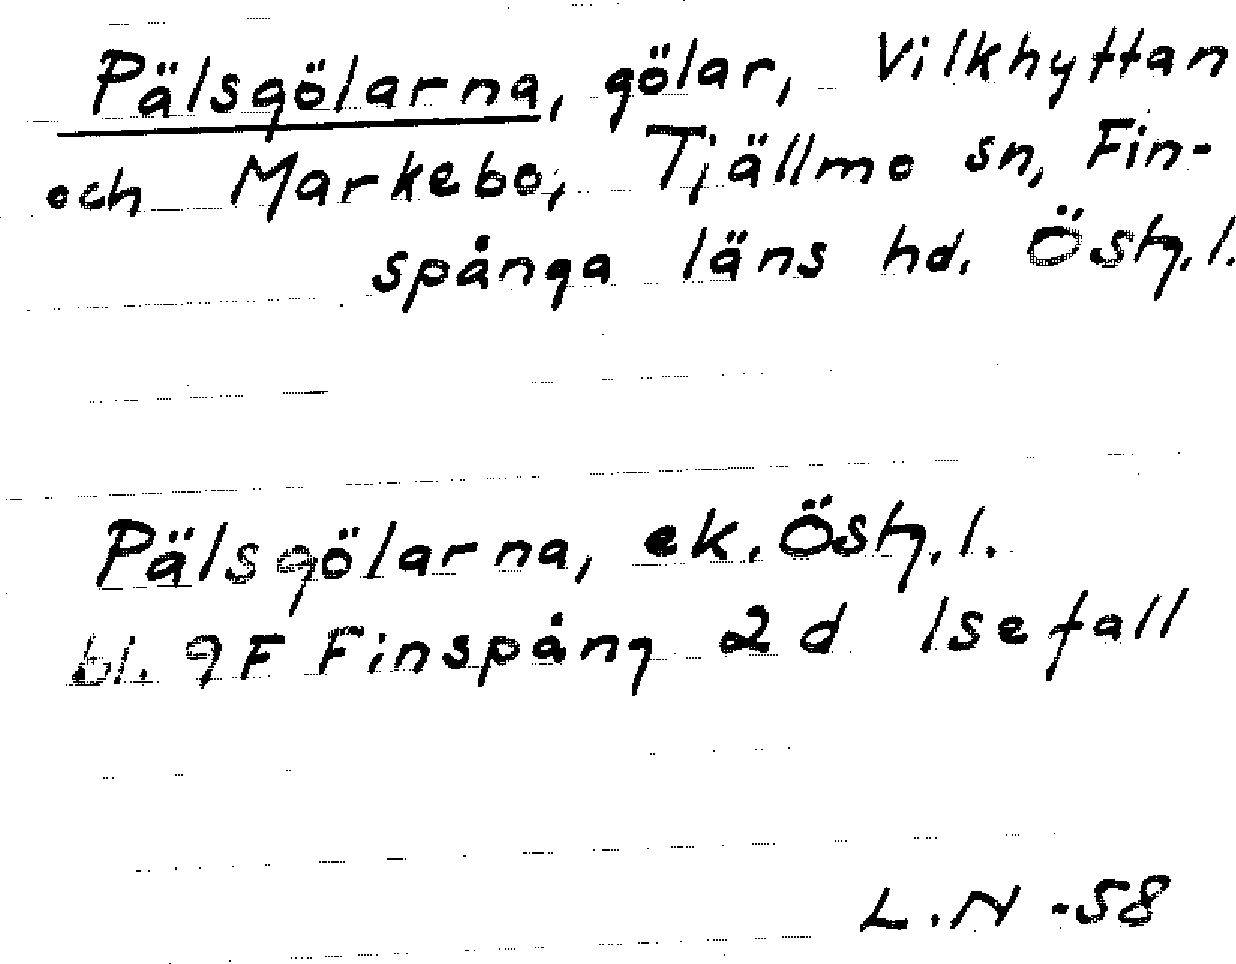 Pälsgölarna, gölar, Vilkhyttan
och Markebo, Tjällmo sn, Fin-
spånga läns hd. Östg. l.
Pälsgölarna, ek. Östg. l.
bl. 9F Finspång 2d Isefall
L.N -58